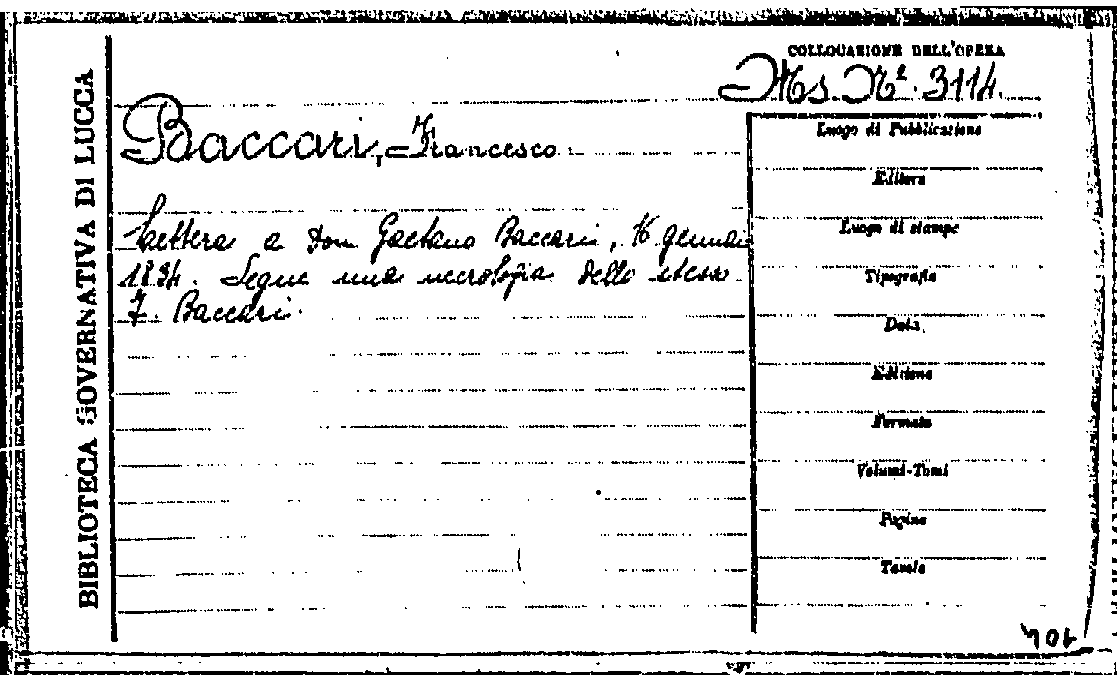 BIBLIOTECA GOVERNATIVA DI LUCCA
COLLOCAZIONE DELL'OPERA
Ms. Nº. 3114.
Baccari, Francesco
Lettera a Don Gaetano Baccari, 16 gennai
Segue una necrologia dello stesso
F. Baccari.
Luogo di Pubblicazione
Editore
Luogo di stampa
Tipografia
Data
Edizione
Formato
Volumi-Tomi
Pagine
Tavole